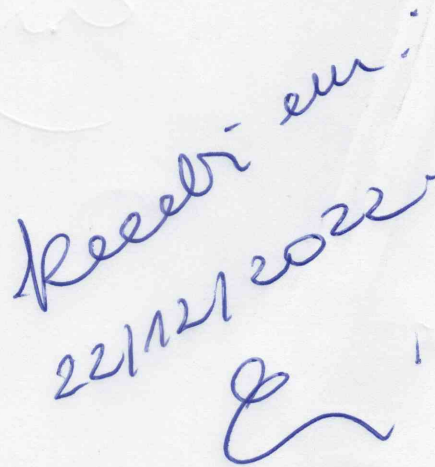 Recebi em:
22/12/2022